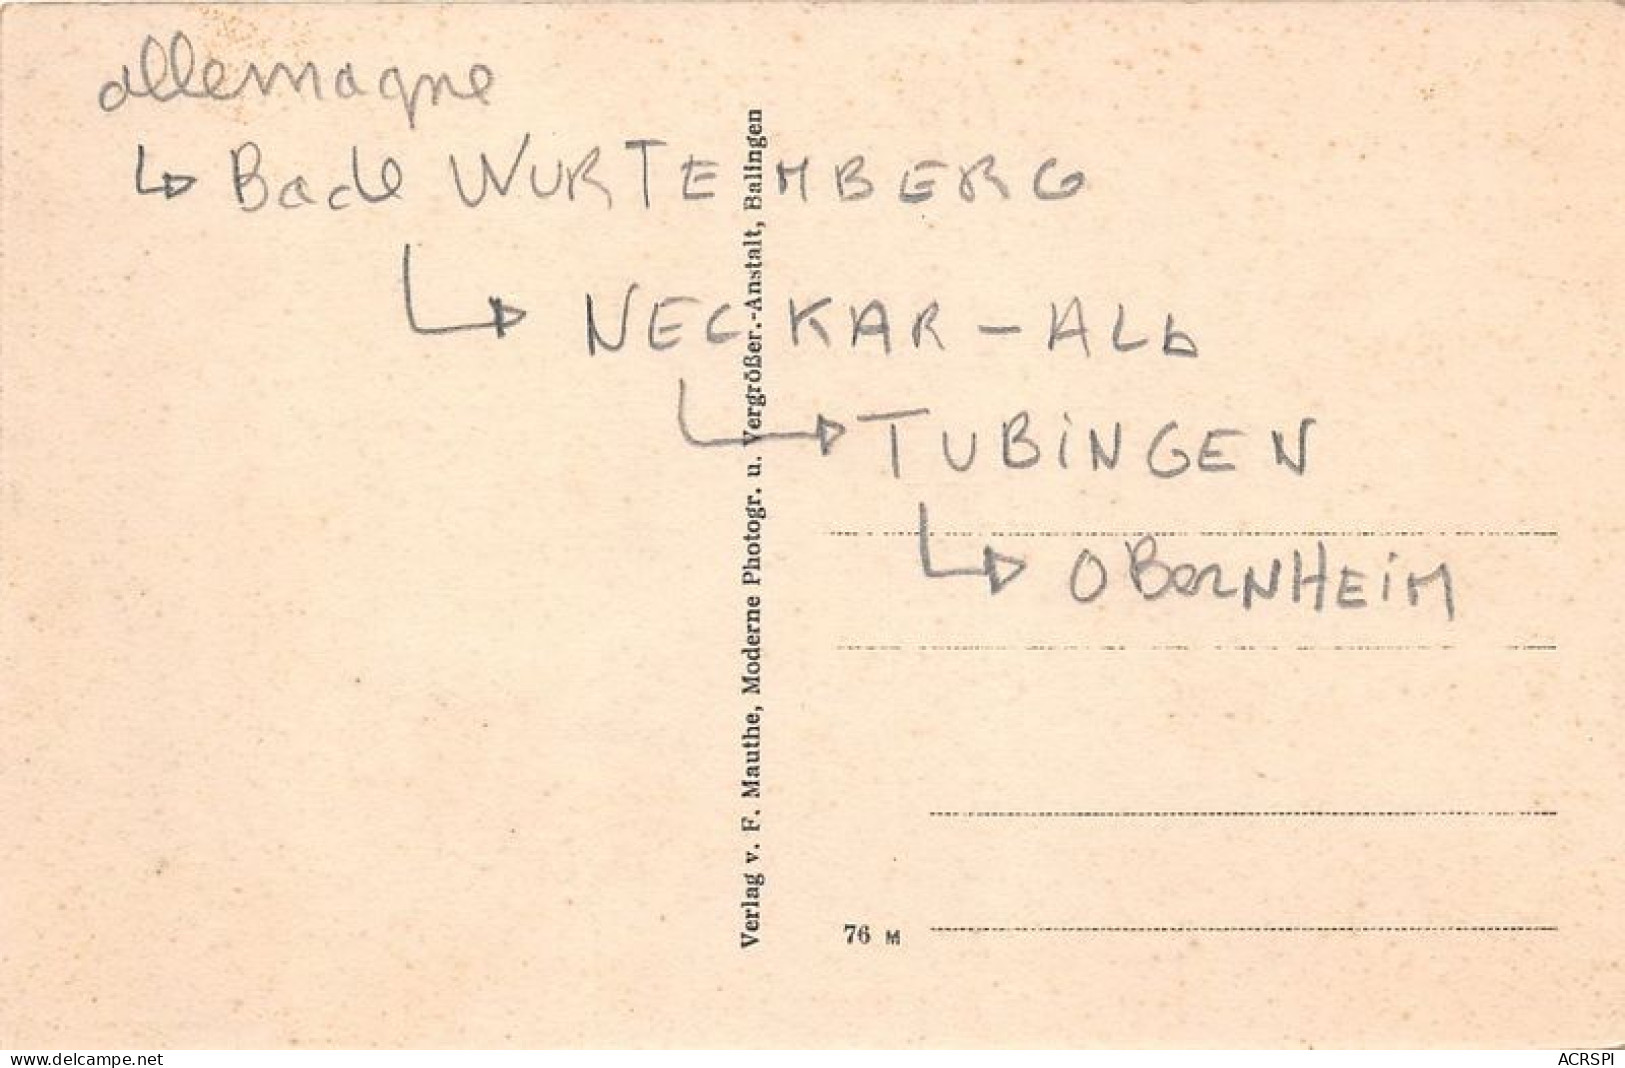 allemagne
Bade WURTEMBERG
NECKAR-ALb
TUBiNGEN
OBerNHEiM
Verlag v. F. Mauthe, Moderne Photogr. u. Vergrößer.-Anstalt, Balingen
76 M
delcampe.net
ACRSPI